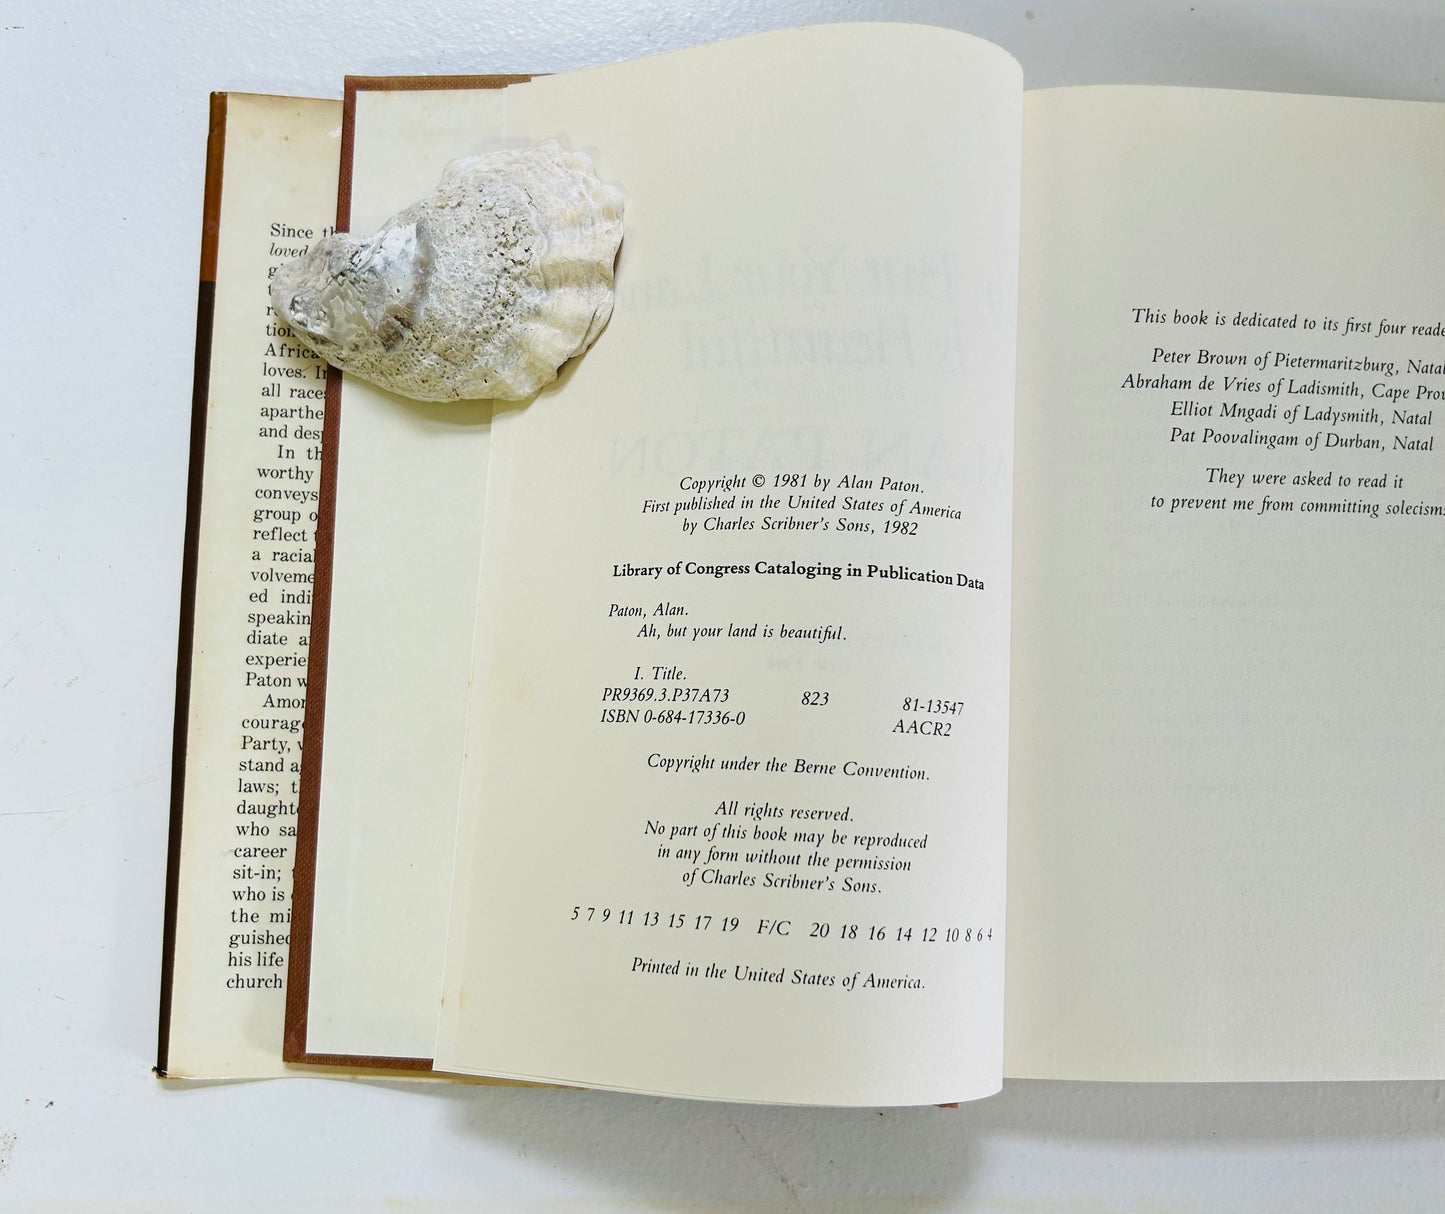 Since
loved
Africa
loves.
all
aparthe
and
In
worthy
conveys
group
reflect
a racial
volveme
ed indi
speakin
diate a
experie
Paton w
Amon
courag
Party,
stand a
laws;
daught
who sa
career
sit-in;
who is
the mi
guished
his life
church
Copyright © 1981 by Alan Paton.
First published in the United States of America
by Charles Scribner's Sons, 1982
Library of Congress Cataloging in Publication Data
Paton, Alan.
Ah, but your land is beautiful.
I. Title.
PR9369.3.P37A73 823 81-13547
ISBN 0-684-17336-0 AACR2
Copyright under the Berne Convention.
All rights reserved.
No part of this book may be reproduced
in any form without the permission
of Charles Scribner's Sons.
5 7 9 11 13 15 17 19 F/C 20 18 16 14 12 10 8 6 4
Printed in the United States of America.
This book is dedicated to its first four reade
Peter Brown of Pietermaritzburg, Natal
Abraham de Vries of Ladismith, Cape Prov
Elliot Mngadi of Ladysmith, Natal
Pat Poovalingam of Durban, Natal
They were asked to read it
to prevent me from committing solecisms